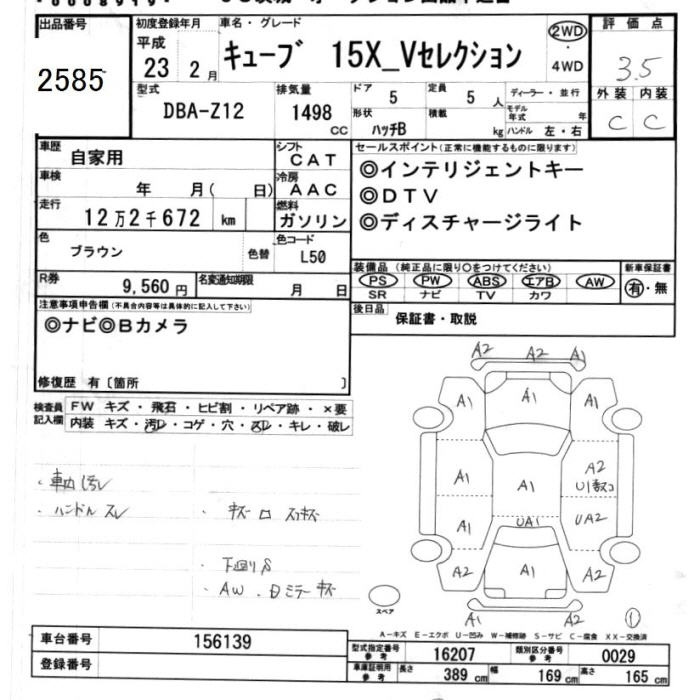 出品番号 2585
初度登録年月 平成 23年 2月
車名・グレード キューブ 15X_Vセレクション
2WD ・ 4WD
評価点 3.5
外装 内装
C C
型式 DBA-Z12
排気量 1498 CC
ドア 5 定員 5 人
形状 ハッチB 積載 kg
ディーラー・並行
モデル年式 年
ハンドル 左・右
車歴 自家用
シフト CAT
車検 年 月( 日)
冷房 AAC
走行 12万2千672 km
燃料 ガソリン
色 ブラウン 色替
色コード L50
R券 9,560円
名変通知期限 月 日
セールスポイント(正常に機能するものに限ります)
◎インテリジェントキー
◎DTV
◎ディスチャージライト
装備品 (純正品に限り〇をつけてください) 新車保証書
PS PW ABS エアB AW 有・無
SR ナビ TV カワ
後日品 保証書・取説
注意事項申告欄(不具合内容等は具体的に記入して下さい)
◎ナビ◎Bカメラ
修復歴 有〔箇所 〕
検査員記入欄 FW キズ・飛石・ヒビ割・リペア跡・×要
内装 キズ・汚レ・コゲ・穴・スレ・キレ・破レ
・車内汚レ
・ハンドルスレ
・下廻りS
・AW
A2 A2 A1
A1 A1
A2
A1 A1
A1 UA1 UA2
A2 A1 A2
A1 A2 ①
スペア
A-キズ E-エクボ U-凹み W-補修跡 S-サビ C-腐食 XX-交換済
車台番号 156139
登録番号
型式指定番号 参考 16207 類別区分番号 参考 0029
車庫証明用 参考 長さ 389 cm 幅 169 cm 高さ 165 cm